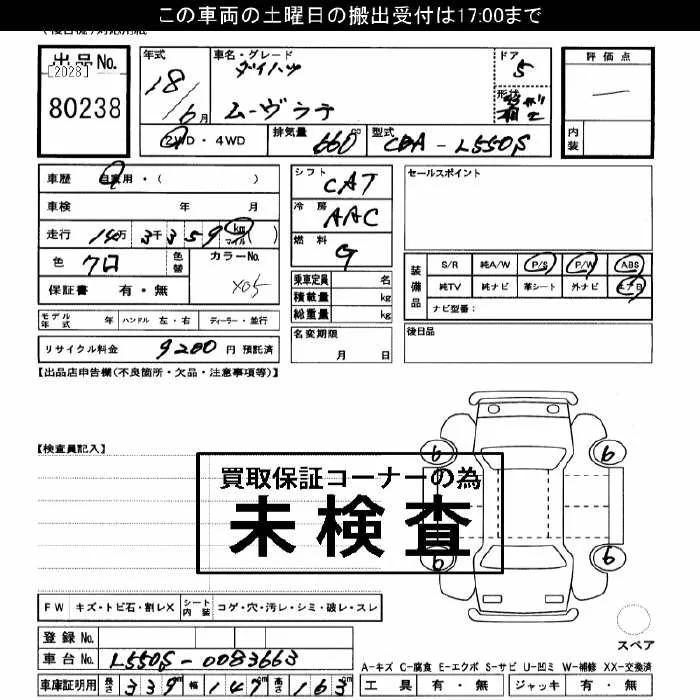 この車両の土曜日の搬出受付は17:00まで
出品No.
[2028]
80238
年式
18/6月
車名・グレード
ダイハツ
ムーヴラテ
ドア
5
形状
評価点
内装
2WD・4WD
排気量 660cc
型式 CBA-L550S
車歴 自家用・( )
車検 年 月
走行 14万3千359 km マイル ( )
色 クロ
色替
カラーNo.
X05
保証書 有・無
モデル年式 年 ハンドル 左・右 ディーラー・並行
リサイクル料金 9200 円 預託済
シフト CAT
冷房 AAC
燃料 G
乗車定員 名
積載量 kg
総重量 kg
名変期限
月 日
セールスポイント
装備品
S/R 純A/W P/S P/W ABS
純TV 純ナビ 革シート 外ナビ エアB
ナビ型番:
後日品
【出品店申告欄(不良箇所・欠品・注意事項等)】
【検査員記入】
買取保証コーナーの為
未検査
6 6
6 6
FW キズ・トビ石・割レX シート内装 コゲ・穴・汚レ・シミ・破レ・スレ
登録No.
車台No. L550S-0083663
車庫証明用 長さ 339cm 幅 147cm 高さ 163cm
スペア
A-キズ C-腐食 E-エクボ S-サビ U-凹ミ W-補修 XX-交換済
工具 有・無 ジャッキ 有・無